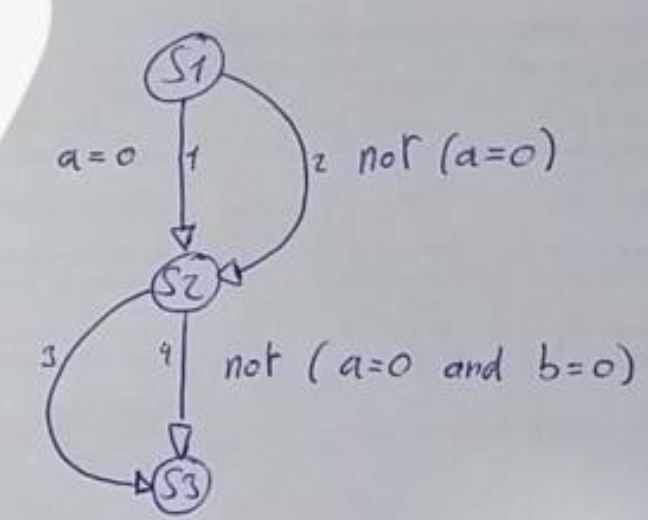 S1
a = 0 1 2 not (a=0)
S2
3 4 not (a=0 and b=0)
S3